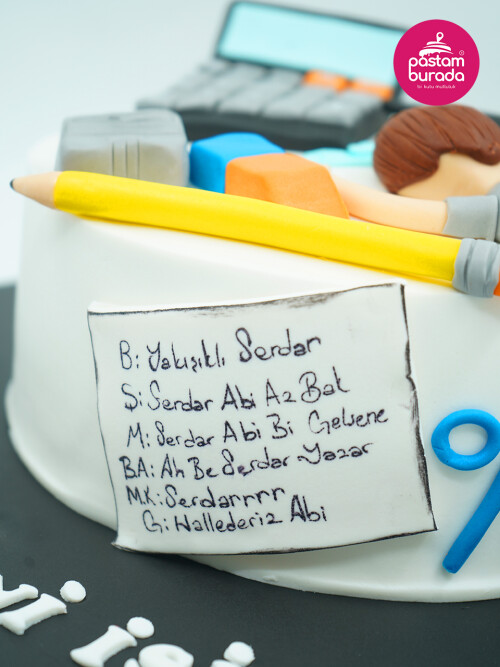 pastam
burada
bi kutu mutluluk
B: Yakışıklı Serdar
S: Serdar Abi Az Bak
M: Serdar Abi Bi Gelsene
BA: Ah Be Serdar Yazar
MK: Serdarrrrr
G: Hallederiz Abi
%